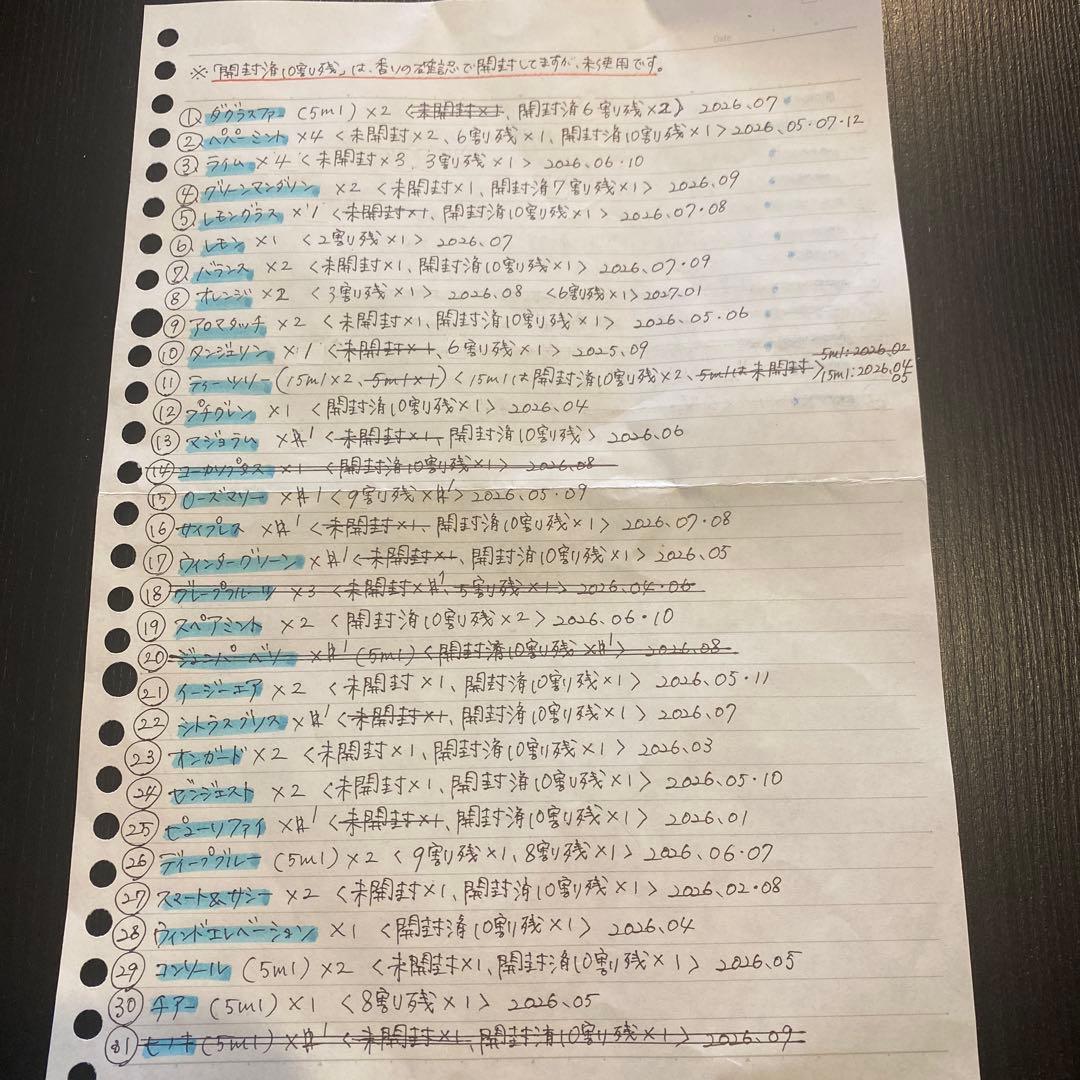 Date
※「開封済10割残」は、香りの確認で開封してますが、未使用です。
① ダグラスファー (5ml) ×2 <未開封×1、開封済6割残×2> 2026.07
② ペパーミント ×4 <未開封×2、6割残×1、開封済10割残×1> 2026.05・07・12
③ ライム ×4 <未開封×3、3割残×1> 2026.06・10
④ グリーンマンダリン ×2 <未開封×1、開封済7割残×1> 2026.09
⑤ レモングラス ×1 <未開封×1、開封済10割残×1> 2026.07・08
⑥ レモン ×1 <2割残×1> 2026.07
⑦ バランス ×2 <未開封×1、開封済10割残×1> 2026.07・09
⑧ オレンジ ×2 <3割残×1> 2026.08 <6割残×1> 2027.01
⑨ アロマタッチ ×2 <未開封×1、開封済10割残×1> 2026.05・06
⑩ タンジェリン ×1 <未開封×1、6割残×1> 2025.09
⑪ ティーツリー (15ml×2、5ml×1) <15mlは開封済10割残×2、5mlは未開封> 5ml:2026.02
15ml:2026.04
05
⑫ プチグレン ×1 <開封済10割残×1> 2026.04
⑬ マジョラム ×1 <未開封×1、開封済10割残> 2026.06
⑭ ユーカリプタス ×1 <開封済10割残×1> 2026.08
⑮ ローズマリー ×1 <9割残×1> 2026.05・09
⑯ サイプレス ×1 <未開封×1、開封済10割残×1> 2026.07・08
⑰ ウィンターグリーン ×1 <未開封×1、開封済10割残×1> 2026.05
⑱ グレープフルーツ ×3 <未開封×1、5割残×1> 2026.04・06
⑲ スペアミント ×2 <開封済10割残×2> 2026.06・10
⑳ ジュニパーベリー ×1 (5ml) <開封済10割残×1> 2026.08
㉑ イージーエア ×2 <未開封×1、開封済10割残×1> 2026.05・11
㉒ シトラスブリス ×1 <未開封×1、開封済10割残×1> 2026.07
㉓ オンガード ×2 <未開封×1、開封済10割残×1> 2026.03
㉔ ゼンジェスト ×2 <未開封×1、開封済10割残×1> 2026.05・10
㉕ ピューリファイ ×1 <未開封×1、開封済10割残×1> 2026.01
㉖ ディープブルー (5ml) ×2 <9割残×1、8割残×1> 2026.06・07
㉗ スマート&サシー ×2 <未開封×1、開封済10割残×1> 2026.02・08
㉘ ウィンドエレベーション ×1 <開封済10割残×1> 2026.04
㉙ コンソール (5ml) ×2 <未開封×1、開封済10割残×1> 2026.05
㉚ チアー (5ml) ×1 <8割残×1> 2026.05
㉛ ヒノキ (5ml) ×1 <未開封×1、開封済10割残×1> 2026.09